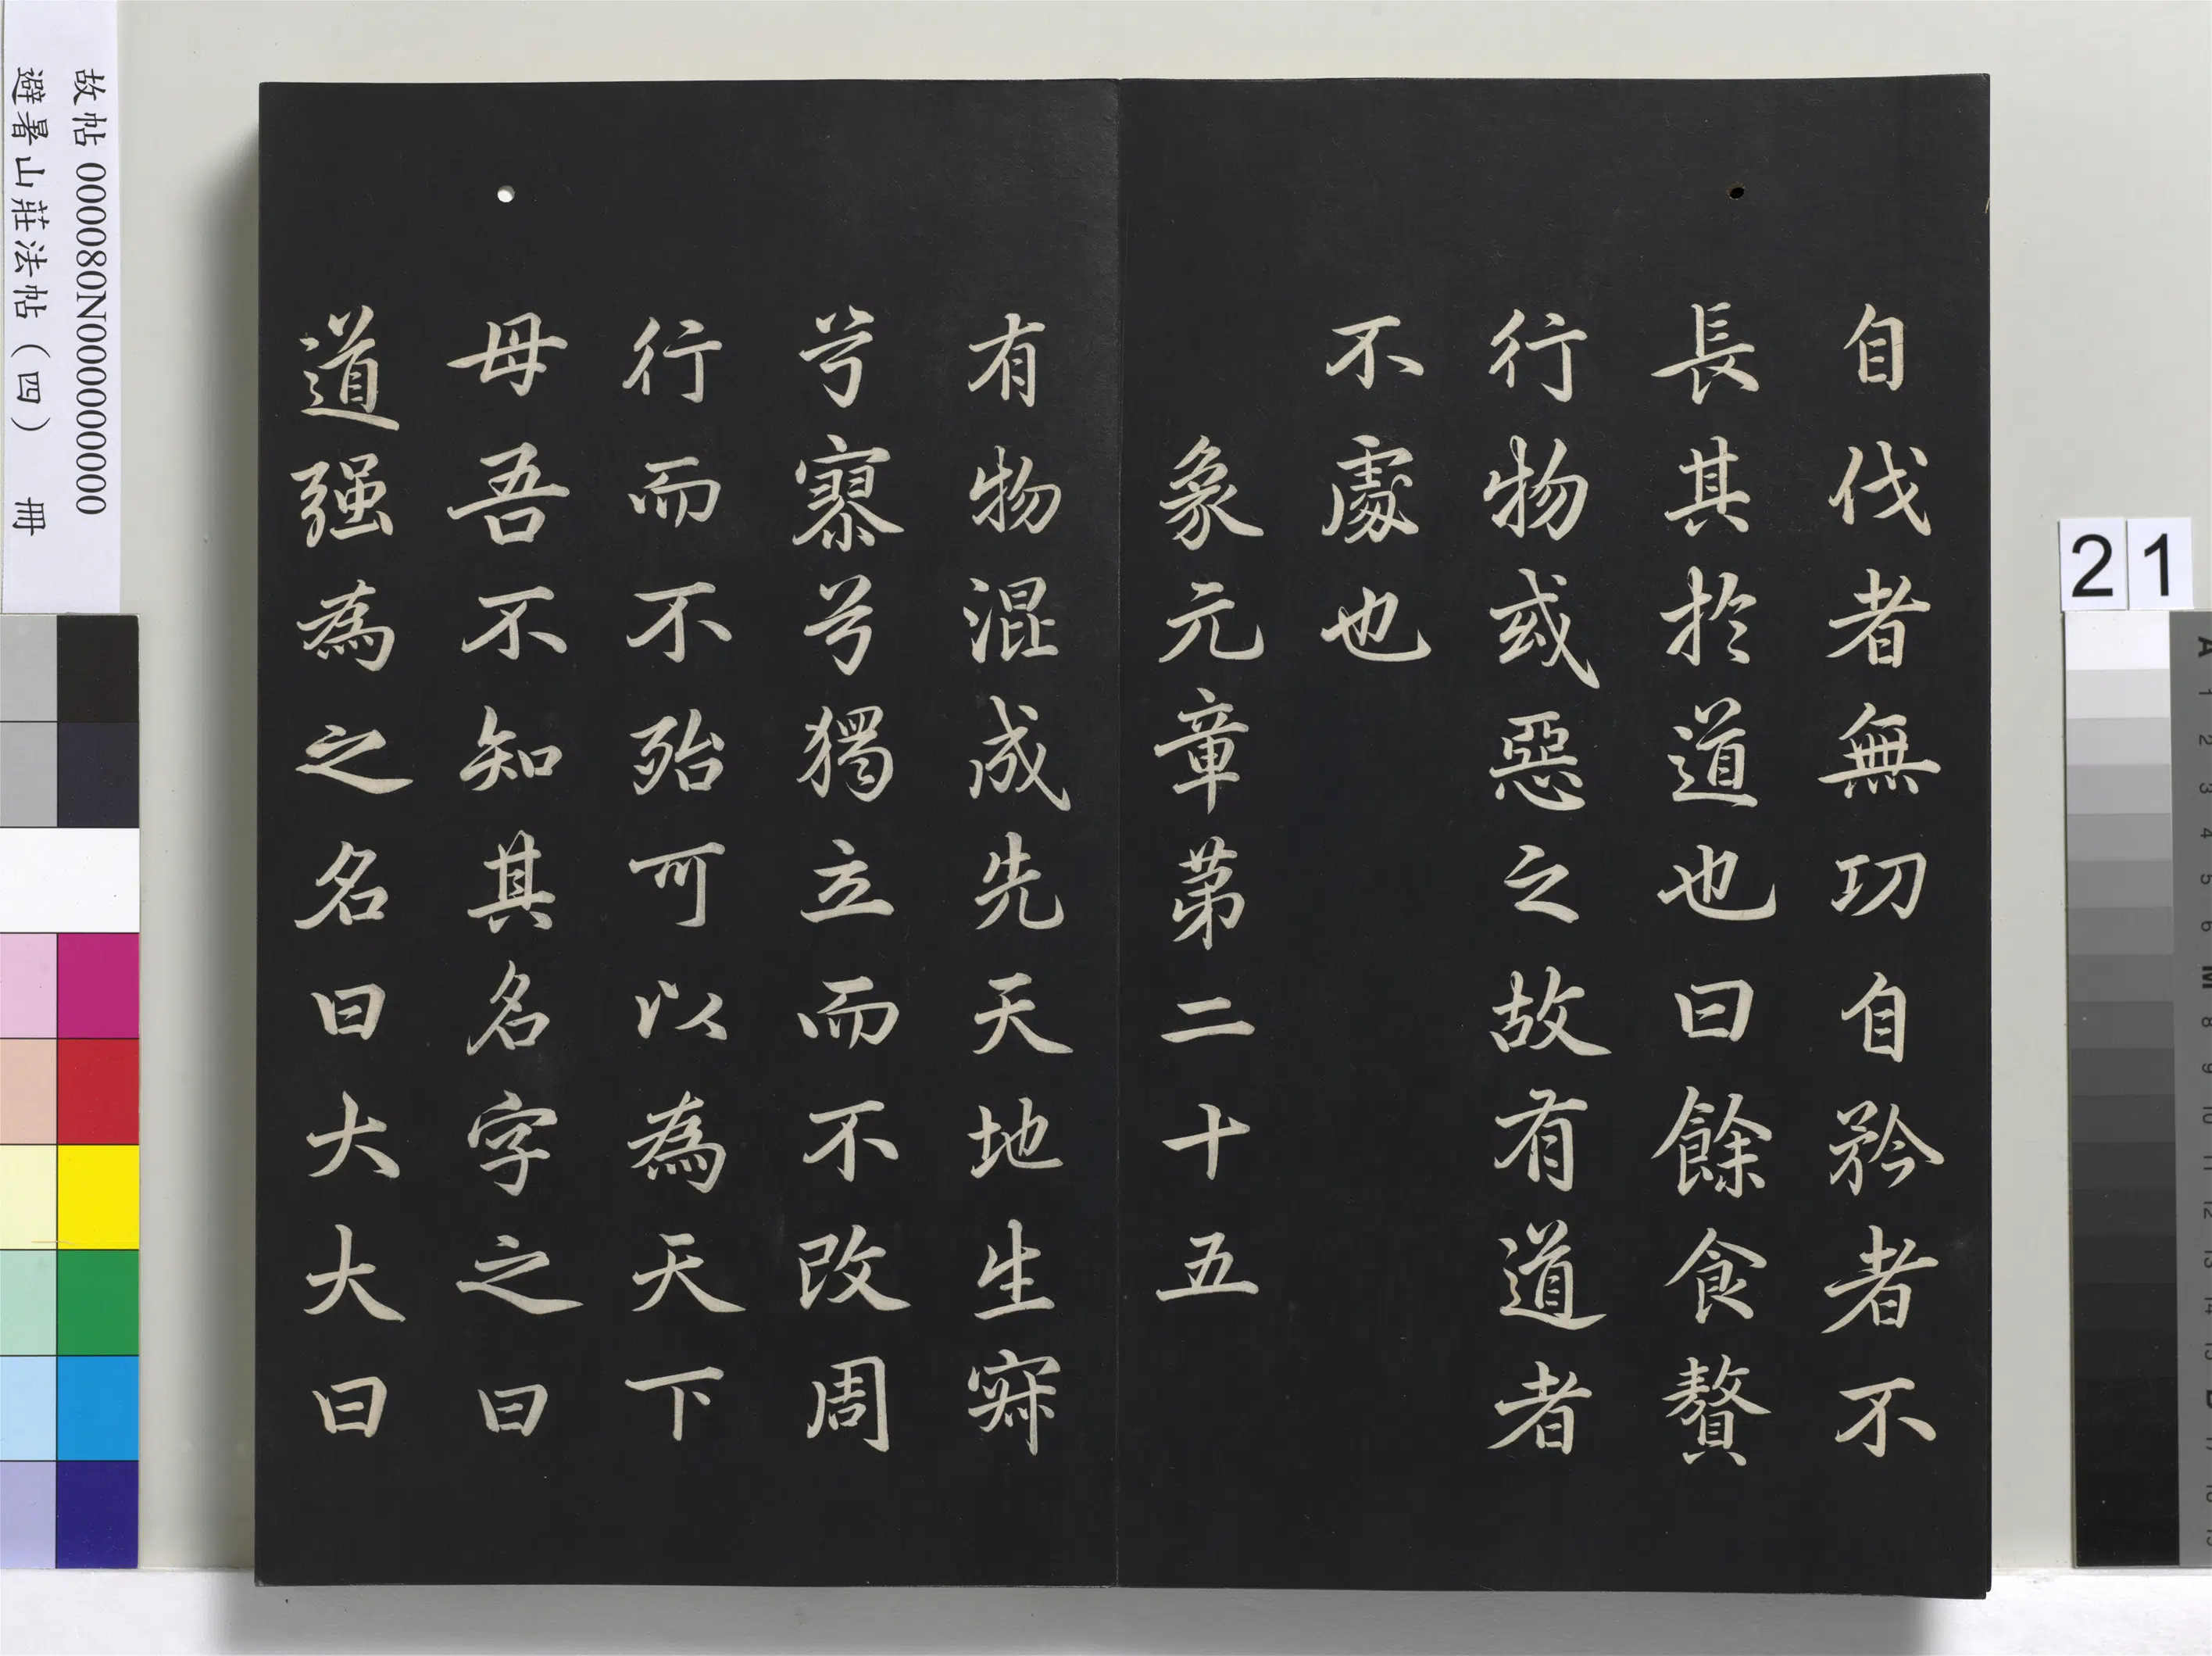 自伐者無功自矜者不
長其於道也曰餘食贅
行物或惡之故有道者
不處也
象元章第二十五
有物混成先天地生寂
兮寥兮獨立而不改周
行而不殆可以為天下
母吾不知其名字之曰
道强為之名曰大大曰
故帖 000080N000000000
避暑山莊法帖（四） 冊
21
A
1
2
3
4
5
6
M
8
9
10
11
12
13
14
15
B
17
18
19